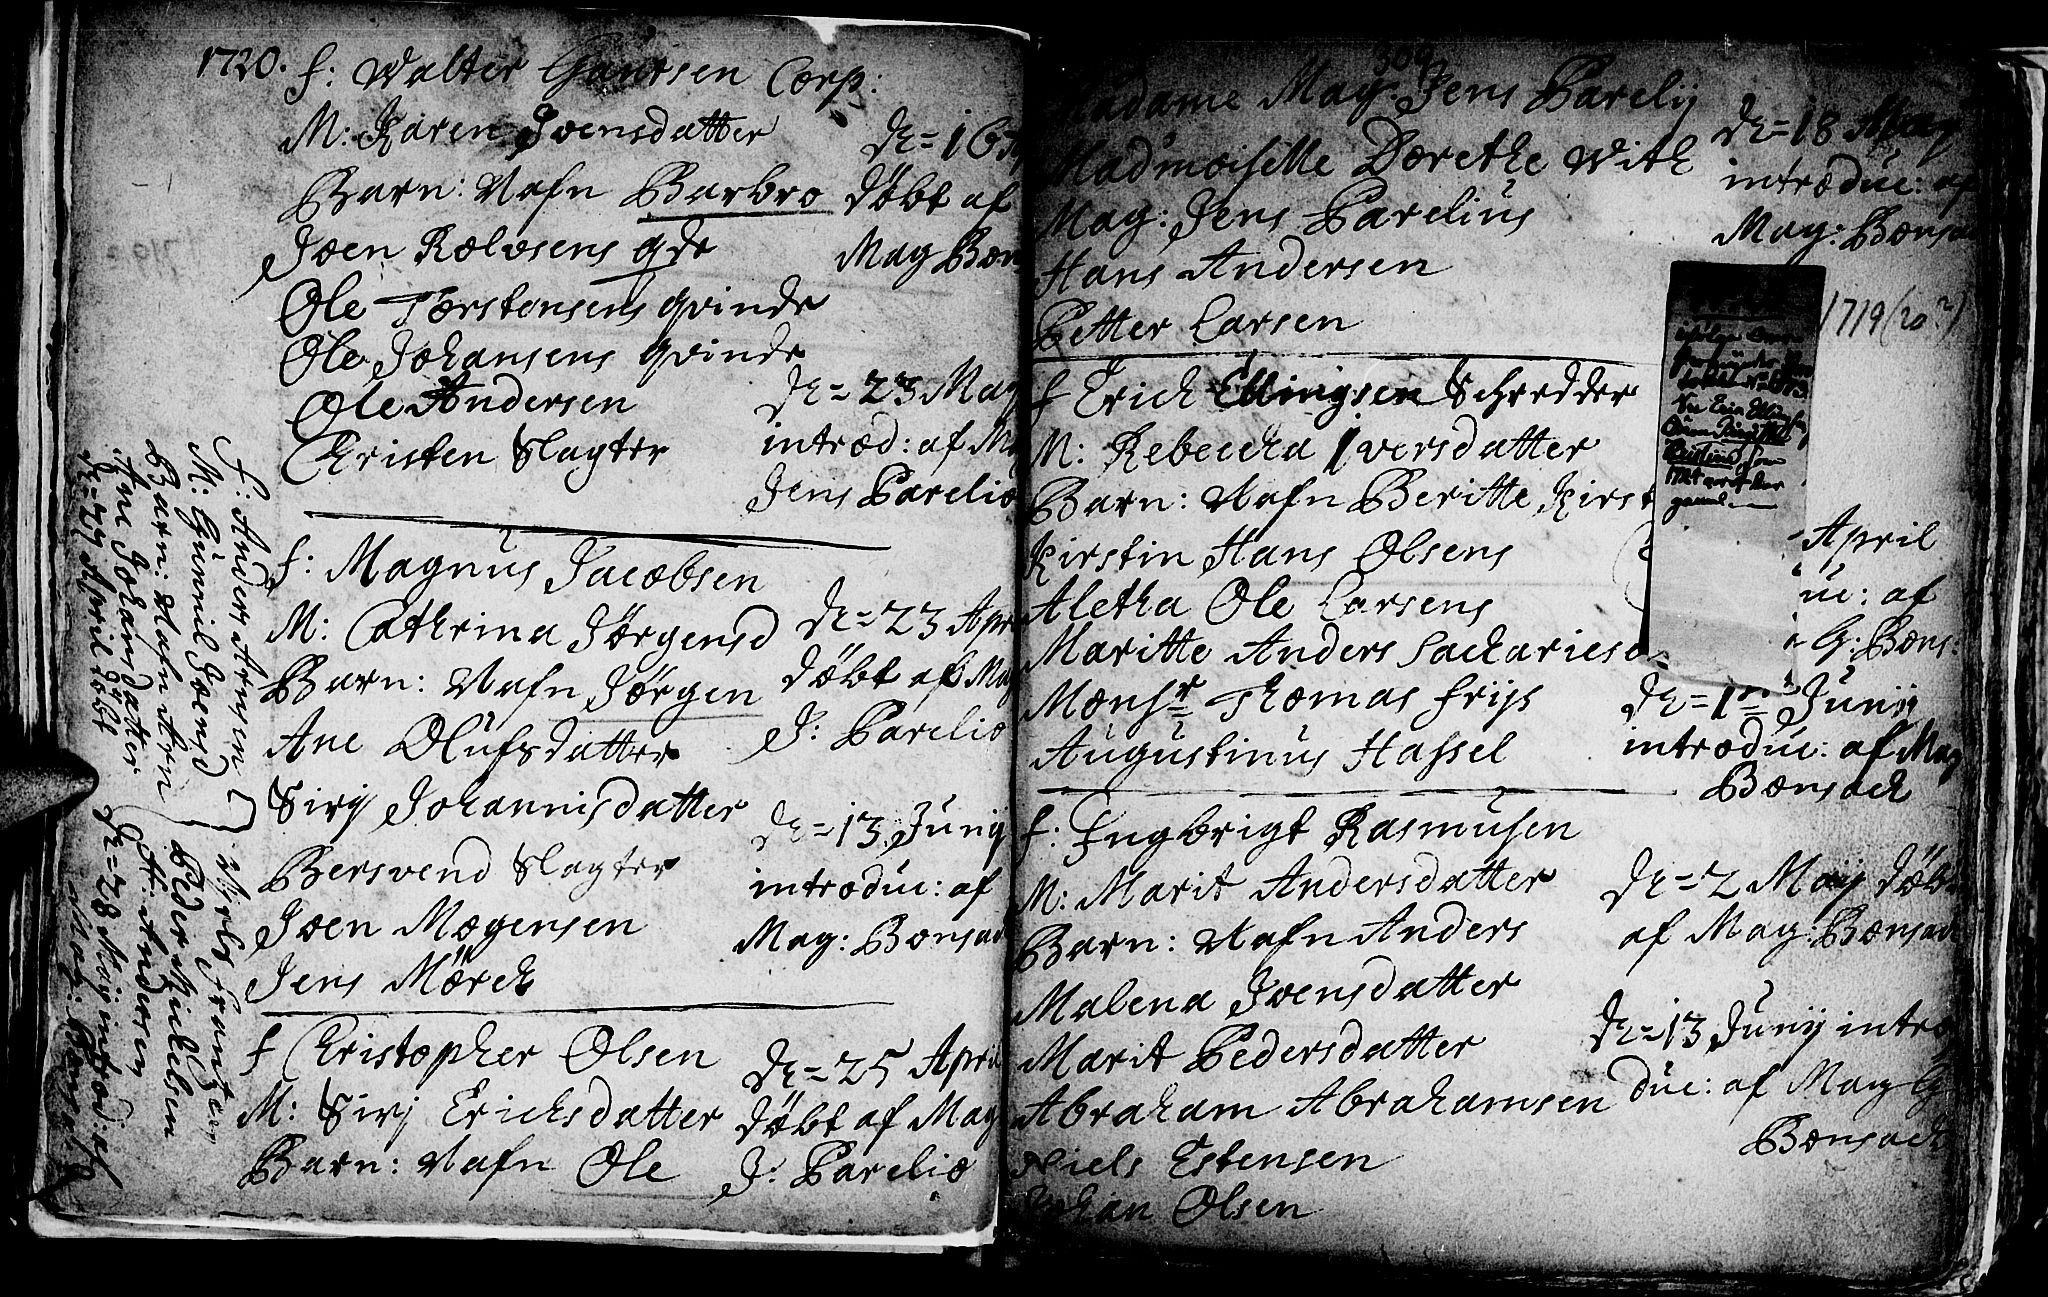 1720.
f: Walter Corp:
M: Karen Joensdatter
Barn: Nafn Barbro
Joen Rolvsens qde
Ole Torstensens qvinde
Ole Johansens qvinde
Ole Andersen
Christen Slagter
d: = 16
døbt af
Mag Bon
d: = 23 May
introd: af M
Jens Parelio
f: Magnus Jacobsen
M: Cathrina Jörgensd
Barn: Nafn Jörgen
Ane Olufsdatter
Siri Johannisdatter
Bersvend Slagter
Joen Mogensen
Jens Mörch
d: = 23 Apr
døbt af Mag
J: Parelio
d: = 13 Junij
introduc: af
Mag: Bonsach
f Christopher Olsen
M: Siri Erichsdatter
Barn: Nafn Ole
d: = 25 April
døbt af Mag
J: Parelio
F: Anders Arnsen
M: Gunnil Joensd
Barn: Nafn Arn
Ane Johansdatter
d: = 27 April döbt
Niels Frantzen
Peder Mickelsen
H: Andersen
d: = 28 Maij introd: af
Mag: Bonsach
309
Madame Mag Jens Parelij
Madmoiselle Dorethe With
Mag: Jens Parelius
Hans Andersen
Petter Larsen
d: = 18 May
introduc: af
Mag: Bonsac
1719 (20?)
f Erich Ellingsen Schredder
M: Rebeccha Iversdatter
Barn: Nafn Beritte, Kirst
Kirstin Hans Olsens
Aletha Ole Larsens
Maritte Anders Sachariesd
Monsr Thomas Frijs
Augustinus Hassel
April
uc: af
G: Bons:
d: = 1 Junij
introduc: af Mag
Bonsach
f: Engbrigt Rasmusen
M: Marit Andersdatter
Barn: Nafn Anders
Malena Joensdatter
Marit Pedersdatter
Abraham Abrahamsen
Niels Estensen
Johan Olsen
d: = 2 Maij döbt
af Mag: Bonsach
d: = 13 Junij intro
duc: af Mag G
Bonsach